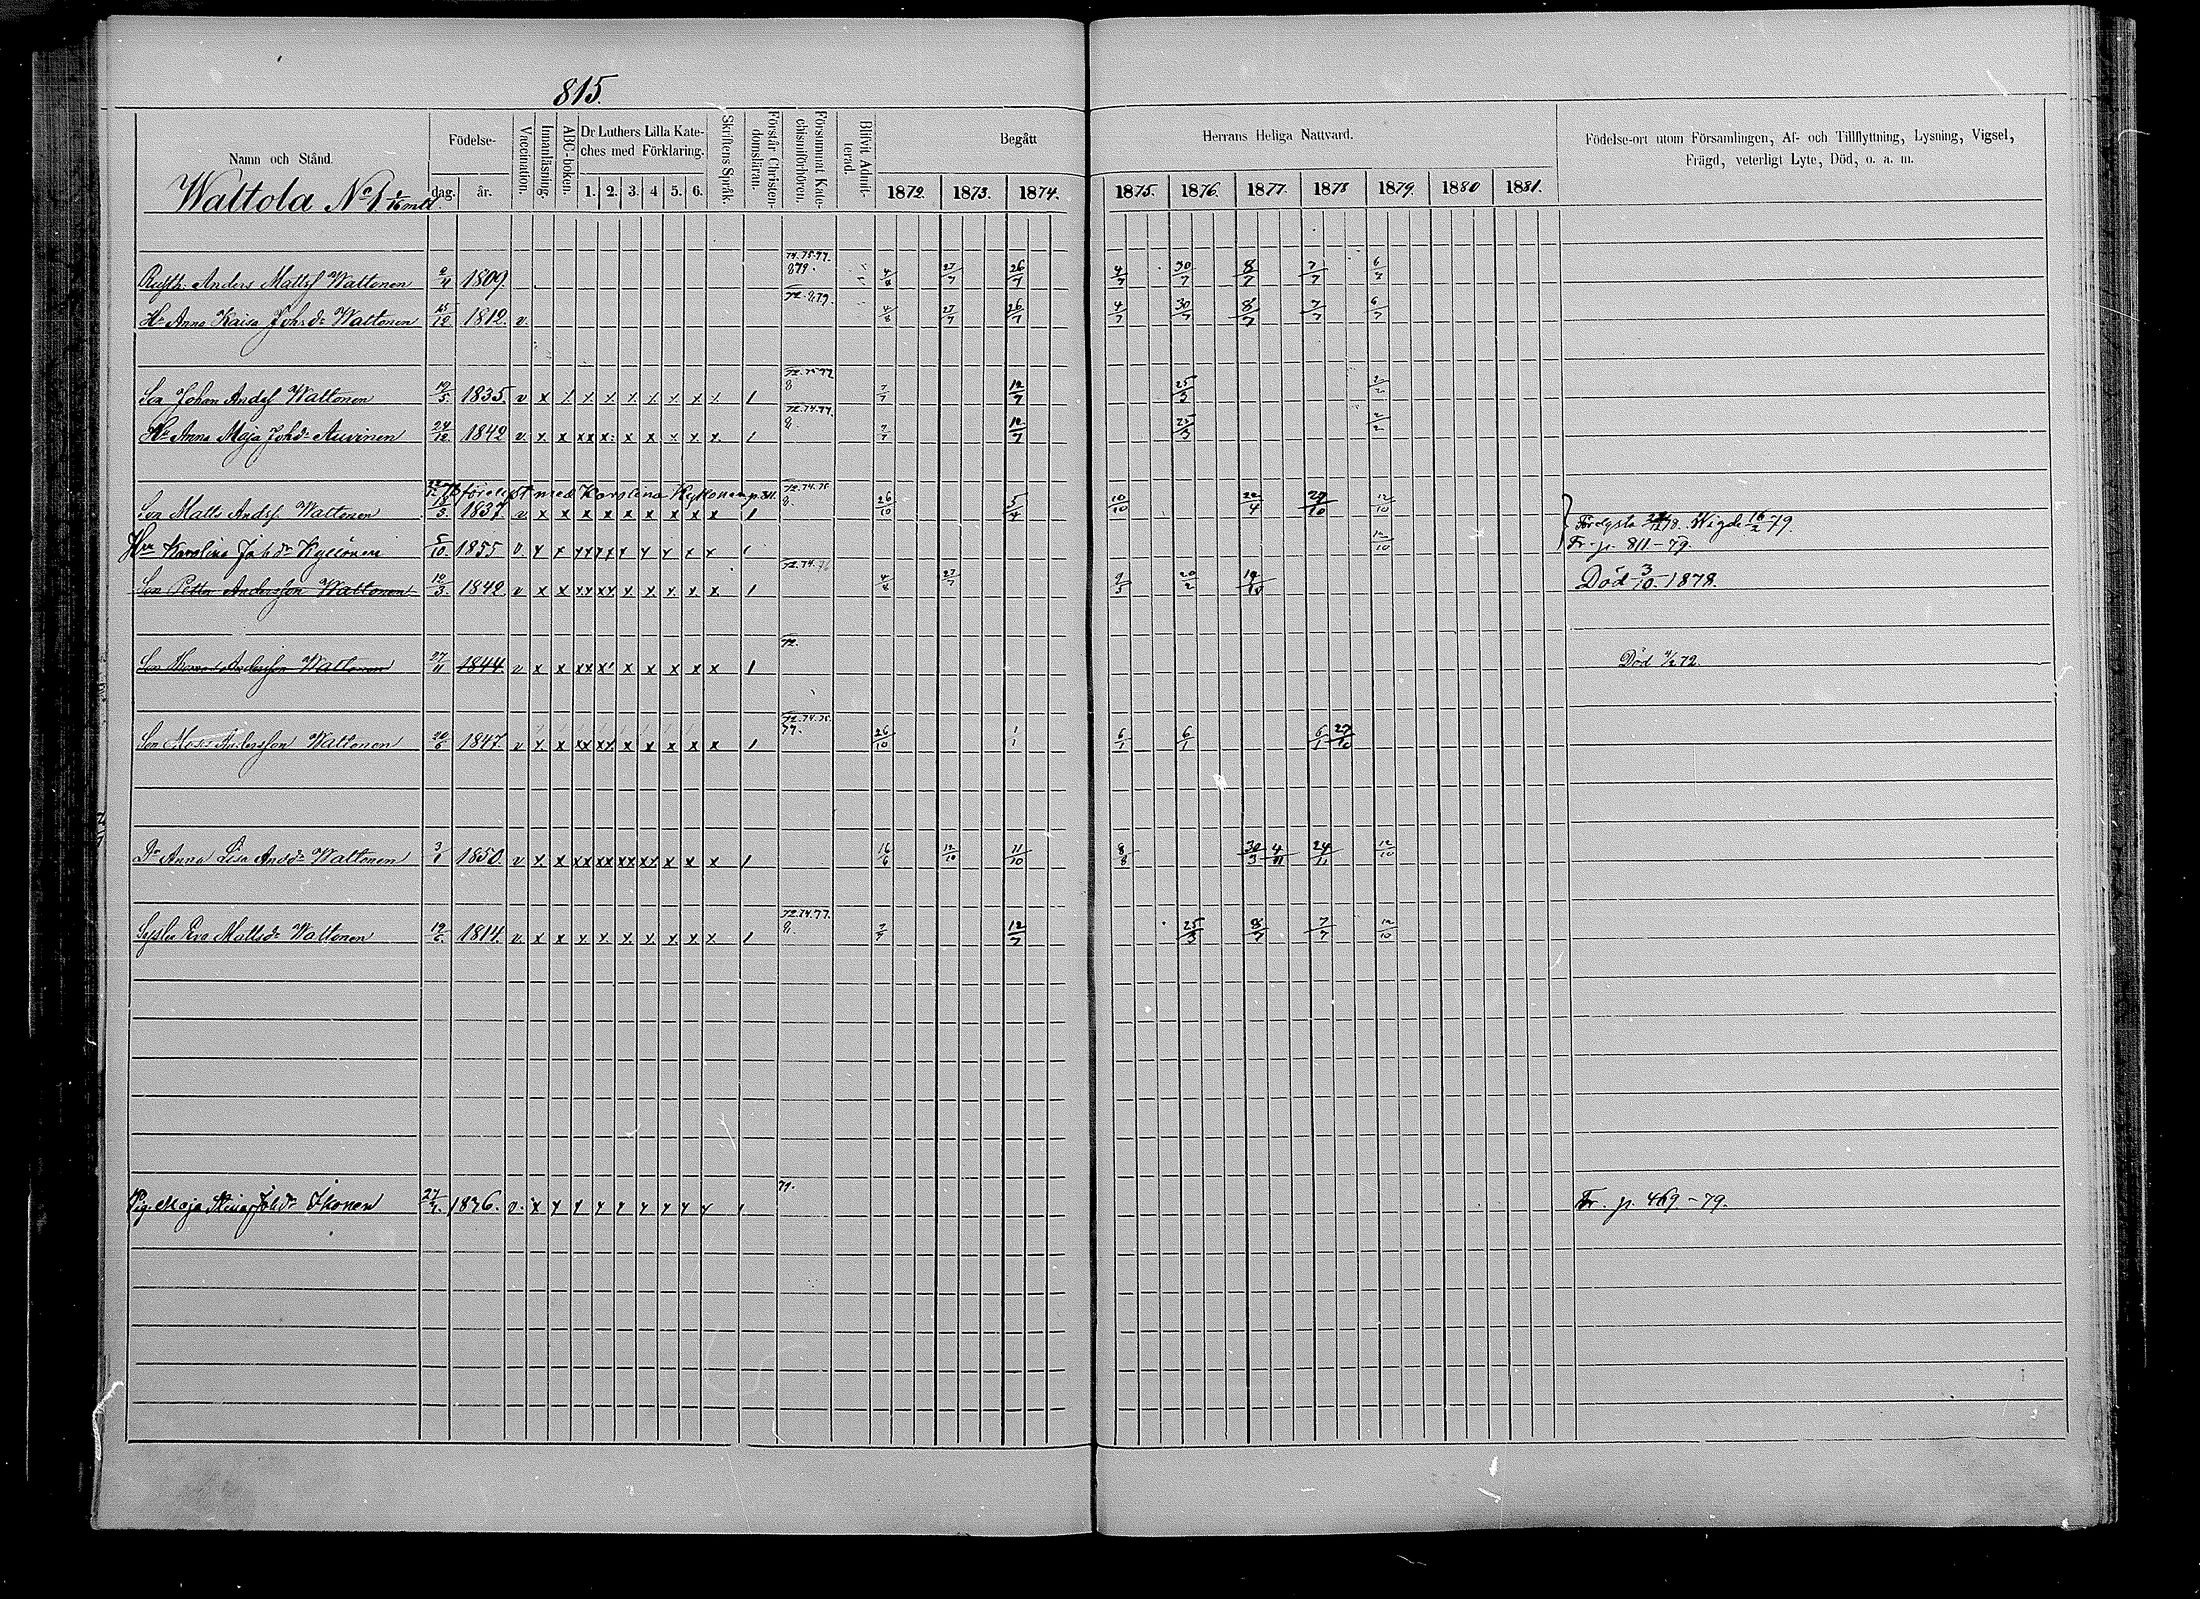 815.
Namn och Stånd.
Födelse-
dag. år.
Vaccination.
Innanläsning.
ABC-boken.
Dr Luthers Lilla Kate-
ches med Förklaring.
1. 2. 3. 4 5. 6.
Skriftens Språk.
Förstår Christen-
domsläran.
Försummat Kate-
chismiförhören.
Blifvit Admit-
terad.
Begått Herrans Heliga Nattvard.
1872. 1873. 1874. 1875. 1876. 1877. 1878 1879. 1880 1881.
Födelse-ort utom Församlingen, Af- och Tillflyttning, Lysning, Vigsel,
Frägd, veterligt Lyte, Död, o. a. m.
Wattola No 1
74.75.77.
Anders Matts Wattonen 1809. 879. 27/7 26/7 4/7 30/7 8/7 7/7 6/7
72.879.
Hu Anna Kaisa Johsdr Wattonen 25/12 1812. v. 4/8 27/7 26/7 4/7 30/7 8/7 7/7 6/7
Son Johan Andes Wattonen 19/5 1835. v x 8 7/7 12/7 25/3 2/2
72.74.77.
Hu Anna Maja Johdr Auvinen 24/12 1842 v x x xx x x x x x x 8. 7/7 12/7 25/3 2/2
med Karolina Kyllönen p. 811. 72.74.75.
Son Matts Andes Wattonen 18/3 1837 v x x x x x x x x x 8. 26/10 5/4 10/10 22/4 27/10 12/10
Wigde 16/2 79.
Hu Karolina Johdr Kyllönen 5/10 1855 v. x x xx xx x x x x x 12/10 Fr. p. 811-79.
72.74.76
Son Petter Andersson Wattonen 10/3 1842 v x x xx xx x x x x x 4/8 27/7 20/2 19/10 Död 3/10. 1878.
72.
Son Andersson Wattonen 27/11 1844 v x x xx x x x x x x Död 72.
72.74.75.
Son Andersson Wattonen 20/6 1847 v x x xx xx x x x x x 77. 26/10 1/1 6/1 6/1 6/1 27/10
Dr Anna Lisa Andsdr Wattonen 3/1 1850. v x x xx xx xx xx x x x 16/6 12/10 11/10 8/8 30/3 4/11 24/11 12/10
72.74.77.
Syster Eva Mattsdr Wattonen 19/6 1814. v. x x x x x x x x x 8. 7/7 12/7 25/3 8/7 7/7 12/10
79.
Pig. Maja Stina Johdr Ikonen 1836. v. x x x x x x x x x Fr. p. 469-79.